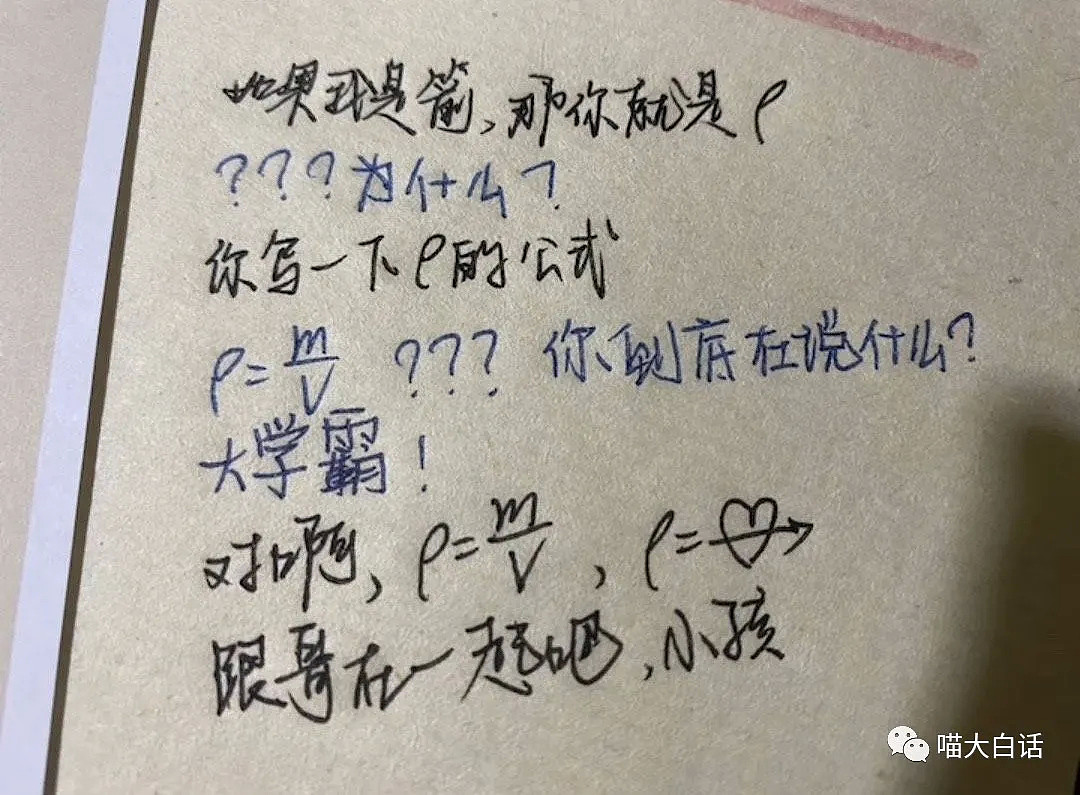 如果我是箭,那你就是ρ
???为什么?
你写一下ρ的公式
ρ=m/V ??? 你到底在说什么?
大学霸!
对啊,ρ=m/V,ρ=
跟哥在一起吧,小孩
喵大白话